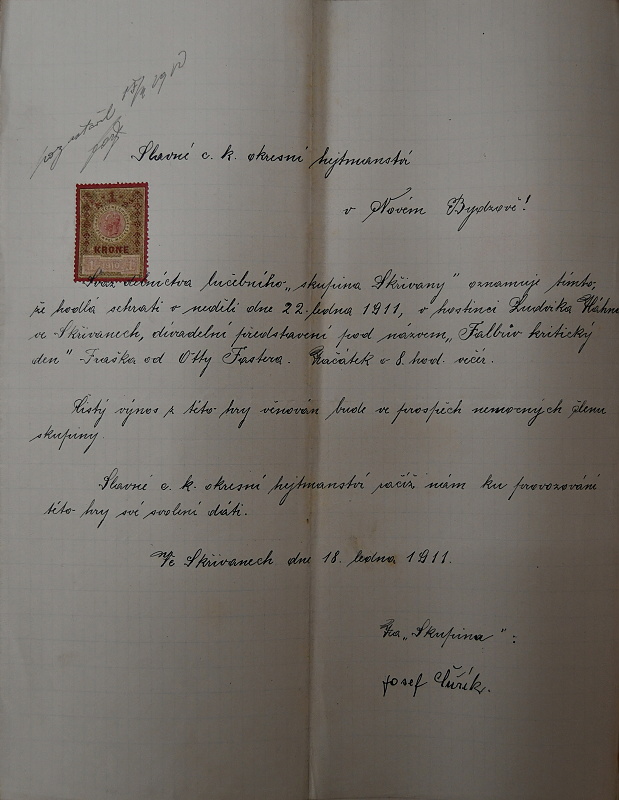 Slavné c. k. okresní hejtmanství
v Novém Bydžově!
1
KRONE
Svaz dělnictva lučebního „skupina Skřivany" oznamuje tímto,
že hodlá sehrati v neděli dne 22. ledna 1911, v hostinci Ludvíka
ve Skřivanech, divadelní představení pod názvem „Falbův kritický
den" Fraška od Otty Fastera. Začátek o 8. hod. večer.
Čistý výnos z této hry věnován bude ve prospěch nemocných členu
skupiny.
Slavné c. k. okresní hejtmanství račiž nám ku provozování
této hry své svolení dáti.
Ve Skřivanech dne 18. ledna 1911.
Za „Skupina":
Josef